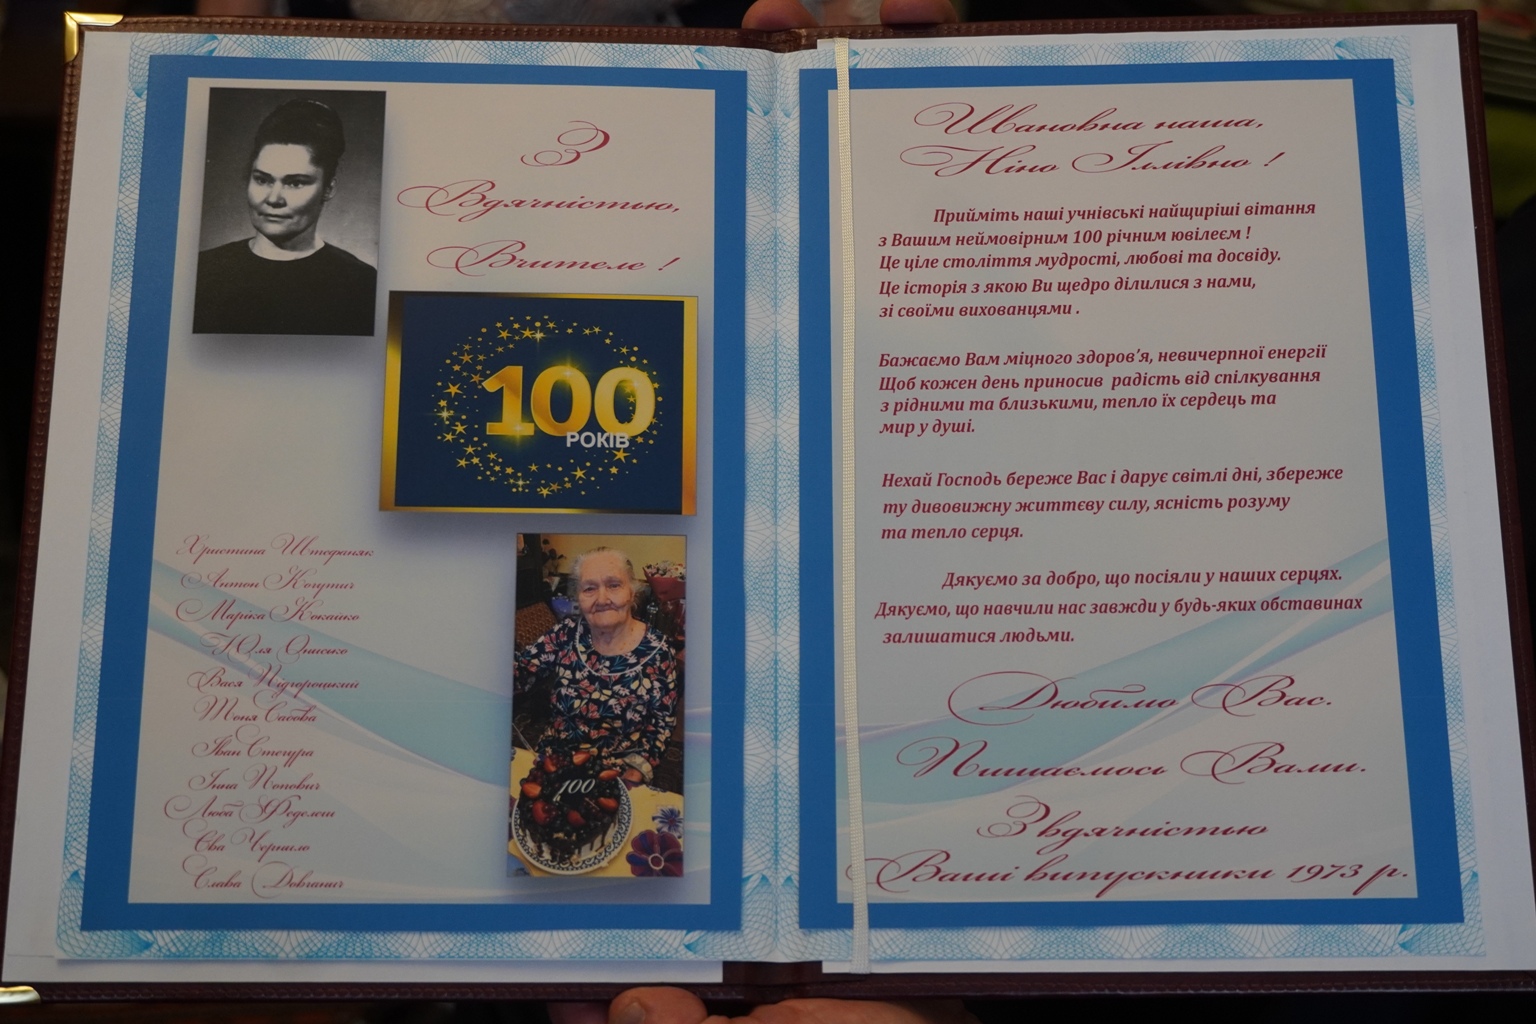 З
Вдячністю,
Вчителе !
100
РОКІВ
Христина Штефаняк
Антон Когутич
Маріка Кокайко
Юля Онисько
Вася Підгороцький
Тоня Савова
Іван Стегура
Інна Попович
Люба Феделеш
Єва Чорнило
Слава Довганич
100
Шановна наша,
Ніно Іллівно !
Прийміть наші учнівські найщиріші вітання
з Вашим неймовірним 100 річним ювілеєм !
Це ціле століття мудрості, любові та досвіду.
Це історія з якою Ви щедро ділилися з нами,
зі своїми вихованцями .
Бажаємо Вам міцного здоров’я, невичерпної енергії
Щоб кожен день приносив радість від спілкування
з рідними та близькими, тепло їх сердець та
мир у душі.
Нехай Господь береже Вас і дарує світлі дні, збереже
ту дивовижну життєву силу, ясність розуму
та тепло серця.
Дякуємо за добро, що посіяли у наших серцях.
Дякуємо, що навчили нас завжди у будь-яких обставинах
залишатися людьми.
Любимо Вас.
Пишаємось Вами.
З вдячністю
Ваші випускники 1973 р.